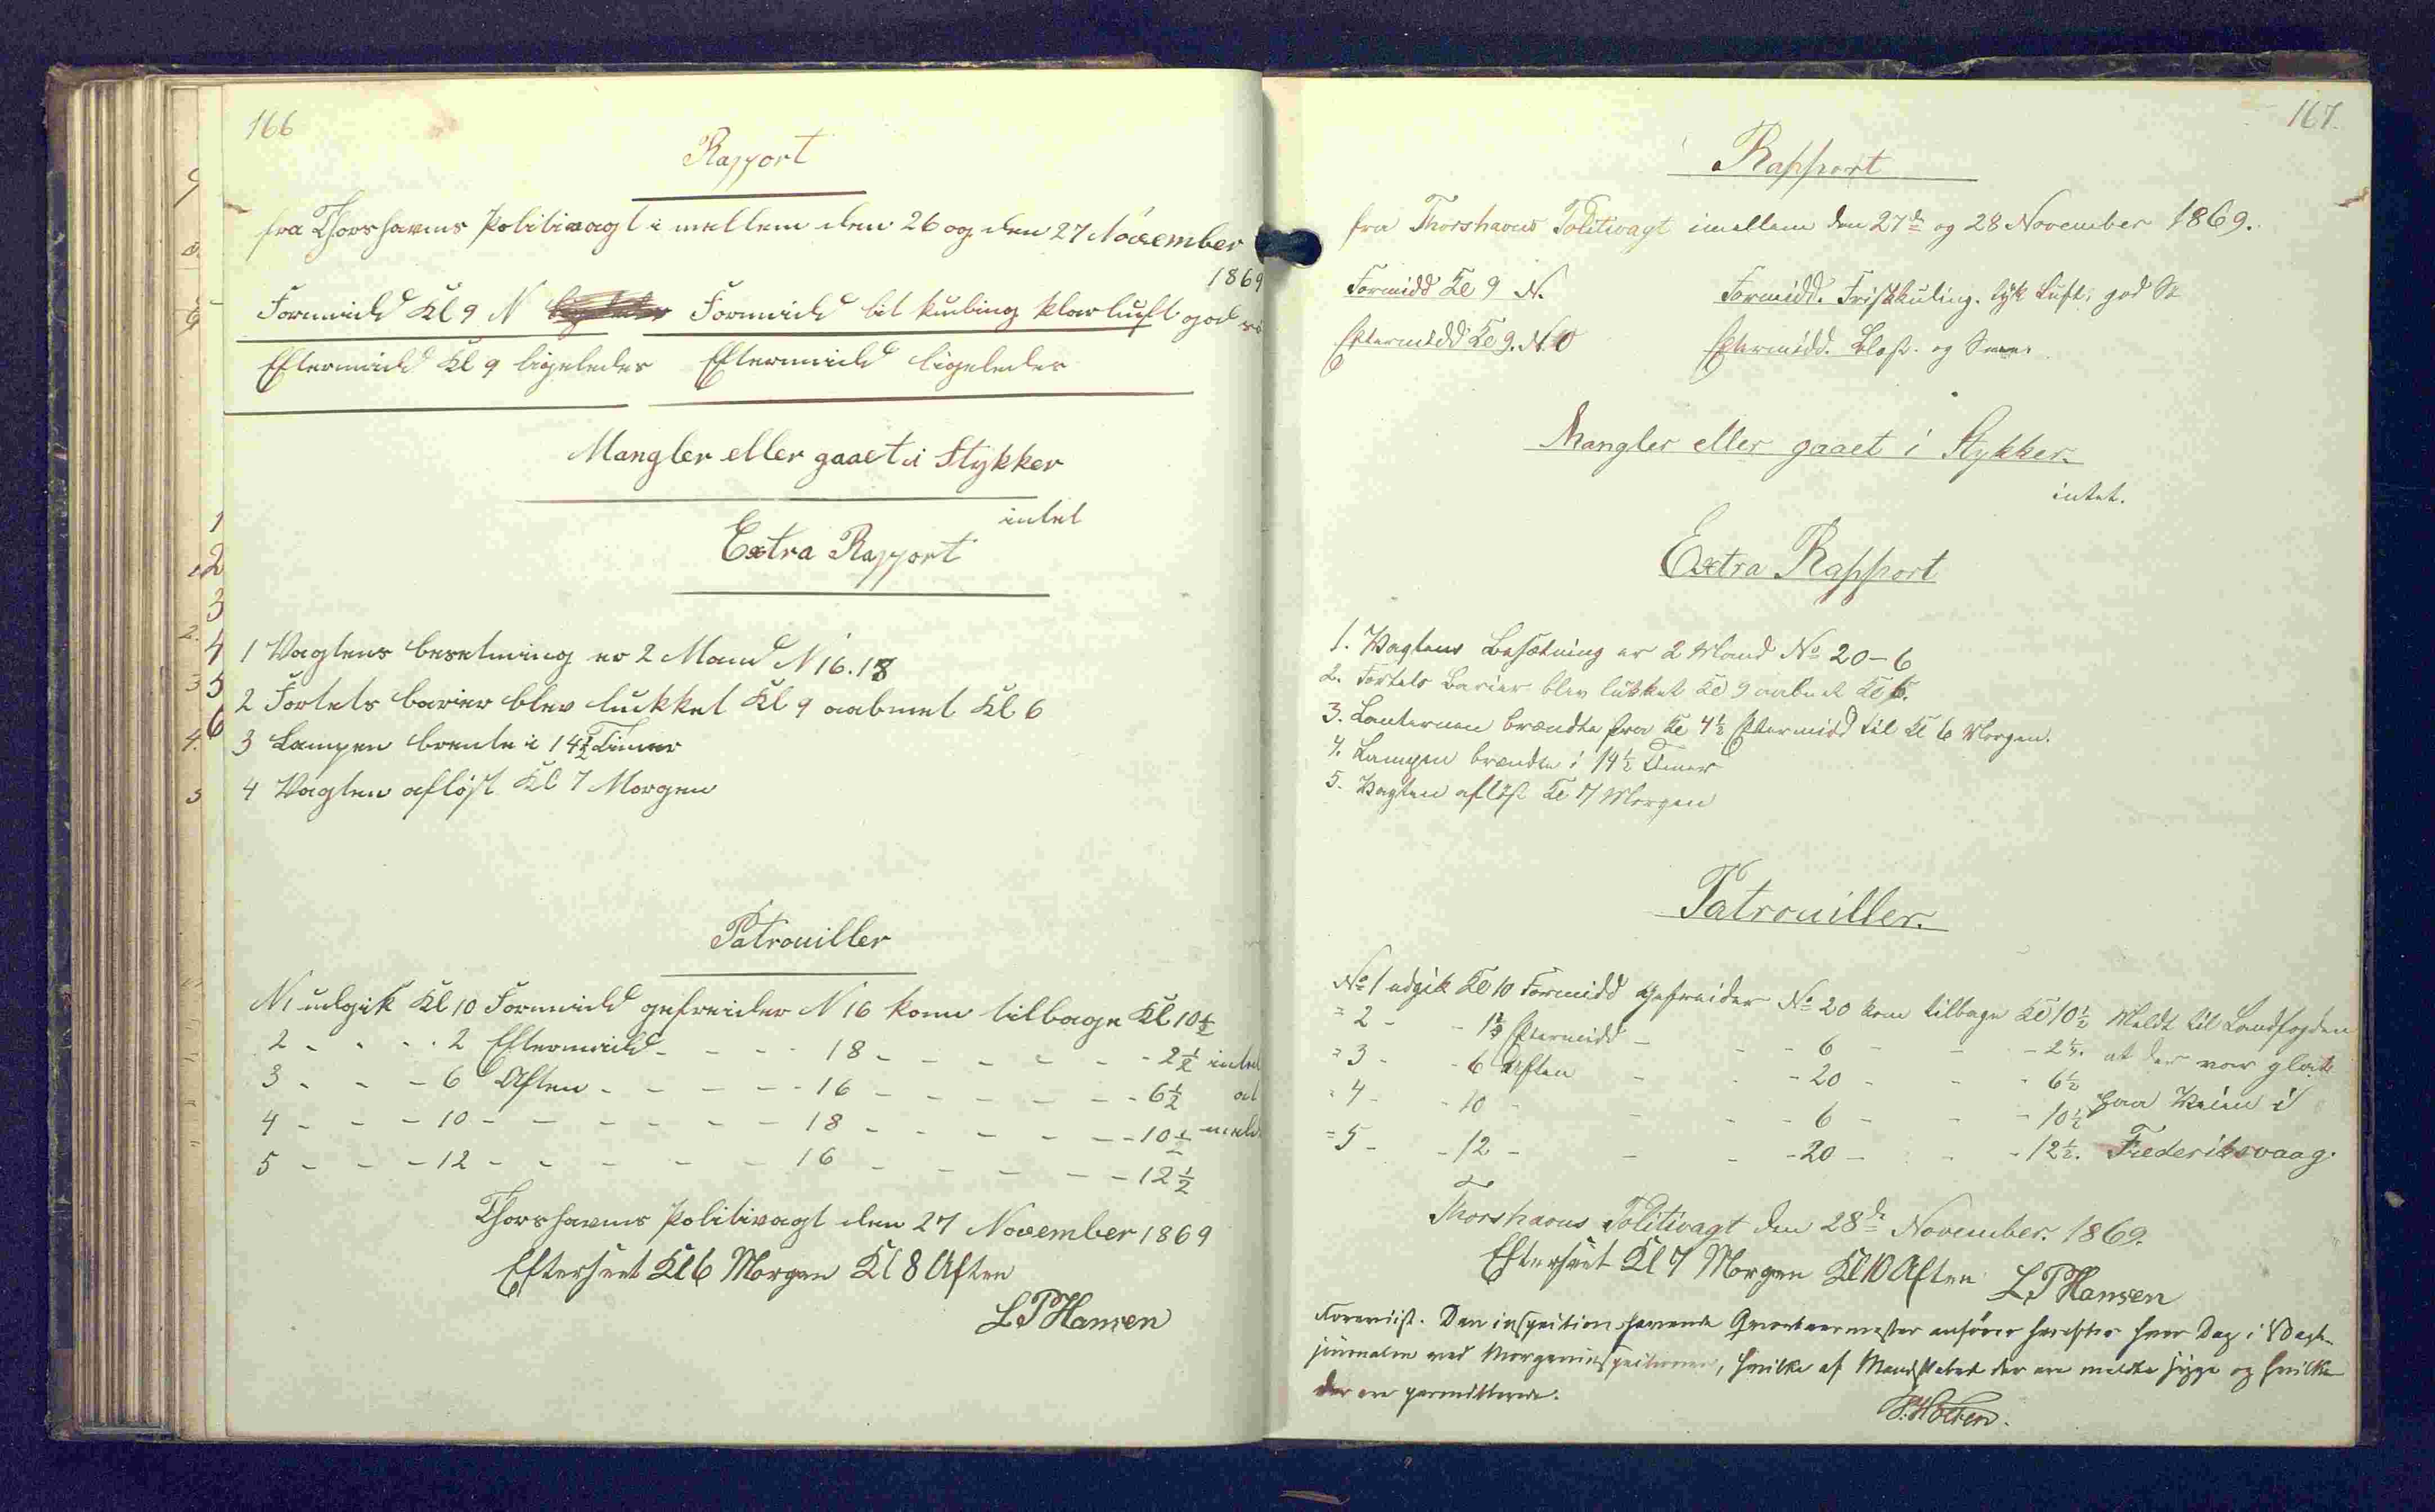 166
Rapport
fra Thorshavns Politivagt i mellem den 26 og den 27 November
1869
Formidd Kl 9 N Formidd lit kuling klar luft god sö
Eftermidd Kl 9 ligeledes Eftermidd ligeledes
Mangler eller gaaet i Stykker
intet
Extra Rapport
1 Vagtens besetning er 2 Mand N 16. 18
2 Fortets barier blev lukket Kl 9 aabnet Kl 6
3 Lampen brente i 14½ Timer
4 Vagten aflöst Kl 7 Morgen
Patrouiller
N1 udgik Kl 10 Formidd gefreider N 16 kom tilbage Kl 10½
2 - - - 2 Eftermidd - - - 18 - - - - - 2½ intet
3 - - - 6 Aften - - - - - 16 - - - - - 6½ at
4 - - - 10 - - - - - - 18 - - - - - 10½ meld
5 - - - 12 - - - - - 16 - - - - - 12½
Thorshavns Politivagt den 27 November 1869
Efterseet Kl 6 Morgen Kl 8 Aften
L P Hansen
167.
Rapport
fra Thorshavns Politivagt imellem den 27de og 28 November 1869.
Formidd Kl 9 N. Formidd. Friskkuling. tyk Luft, god Sö
Eftermidd Kl 9. N.O Eftermidd. Blæst. og Snee.
Mangler eller gaaet i Stykker.
intet.
Extra Rapport
1. Vagtens Besætning er 2 Mand No 20-6
2. Fortets Barier blev lukket Kl 9 aabnet Kl 6.
3. Lanternen brændte fra Kl 4½ Eftermidd til Kl 6 Morgen.
4. Lampen brændte i 14½ Timer
5. Vagten aflöst Kl 7 Morgen
Patrouiller.
No 1 udgik Kl 10 Formidd Gefreider No 20 kom tilbage Kl 10½ Meldt til Landfogden
= 2 - - 1½ Eftermidd - - - 6 - - - 2½. at der var glat
= 3 - - 6 Aften - - - 20 - - - 6½ paa Veien i
= 4 - - 10 - - - 6 - - - 10½
= 5 - - 12 - - - 20 - - - 12½. Frederiksvaag.
Thorshavns Politivagt den 28de November. 1869.
Efterseet Kl 7 Morgen Kl 10 Aften L P Hansen
Foreviist. Den inspection havende Qvarteermester anförer herefter hver Dag i Vagt-
journalen ved Morgeninspectionen, hvilke af Mandskabet der ere meldte syge og hvilke
der ere permitterede.